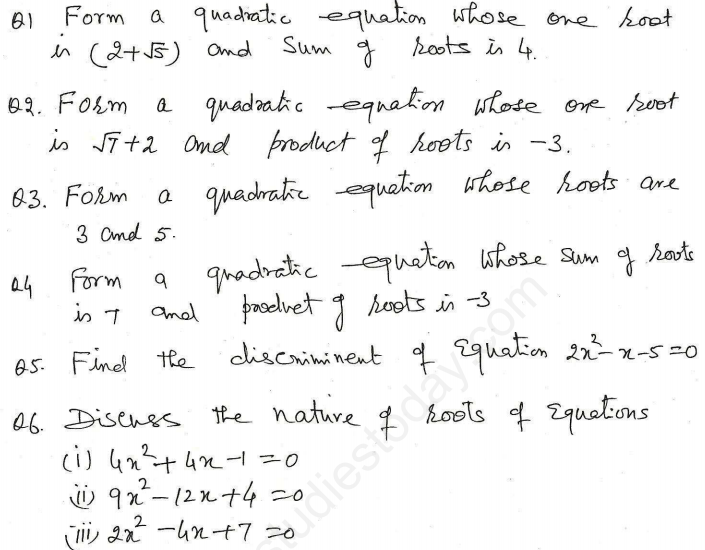 Q1 Form a quadratic equation whose one root
is (2+√5) and Sum of roots is 4.
Q2. Form a quadratic equation whose one root
is √7+2 and product of roots is -3.
Q3. Form a quadratic equation whose roots are
3 and 5.
Q4 Form a quadratic equation whose sum of roots
is 7 and product of roots is -3
Q5. Find the discriminent of Equation 2x²-x-5=0
Q6. Discuss the nature of roots of Equations
(i) 4x²+4x-1=0
(ii) 9x²-12x+4=0
(iii) 2x²-4x+7=0
studiestoday.com